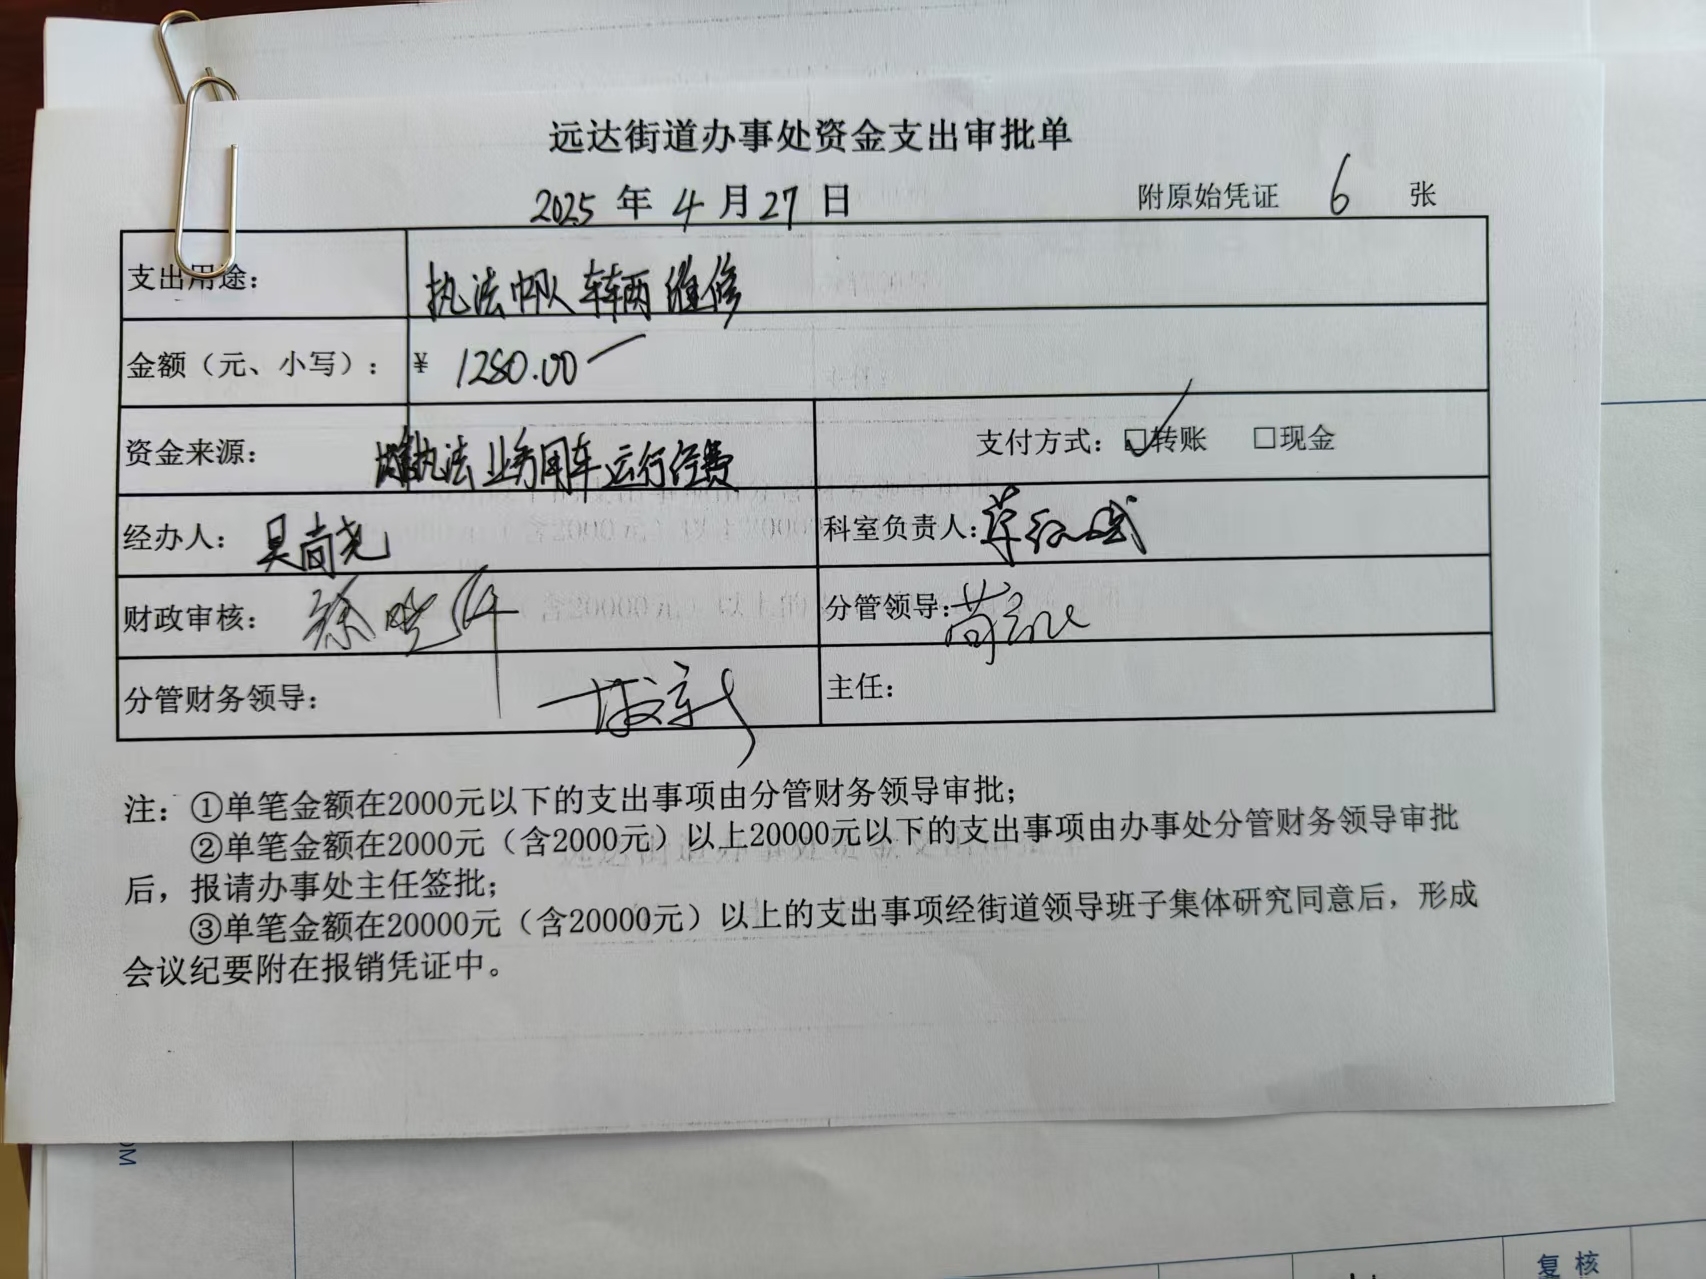 远达街道办事处资金支出审批单
2025 年 4 月 27 日 附原始凭证 6 张
支出用途： 执法中队车辆维修
金额（元、小写）： ¥ 1280.00
资金来源： 执法业务用车运行经费 支付方式：☑转账 □现金
经办人： 吴尚尧 科室负责人：
财政审核： 徐晓 分管领导：
分管财务领导： 主任：
注：①单笔金额在2000元以下的支出事项由分管财务领导审批；
②单笔金额在2000元（含2000元）以上20000元以下的支出事项由办事处分管财务领导审批
后，报请办事处主任签批；
③单笔金额在20000元（含20000元）以上的支出事项经街道领导班子集体研究同意后，形成
会议纪要附在报销凭证中。
OM
复核